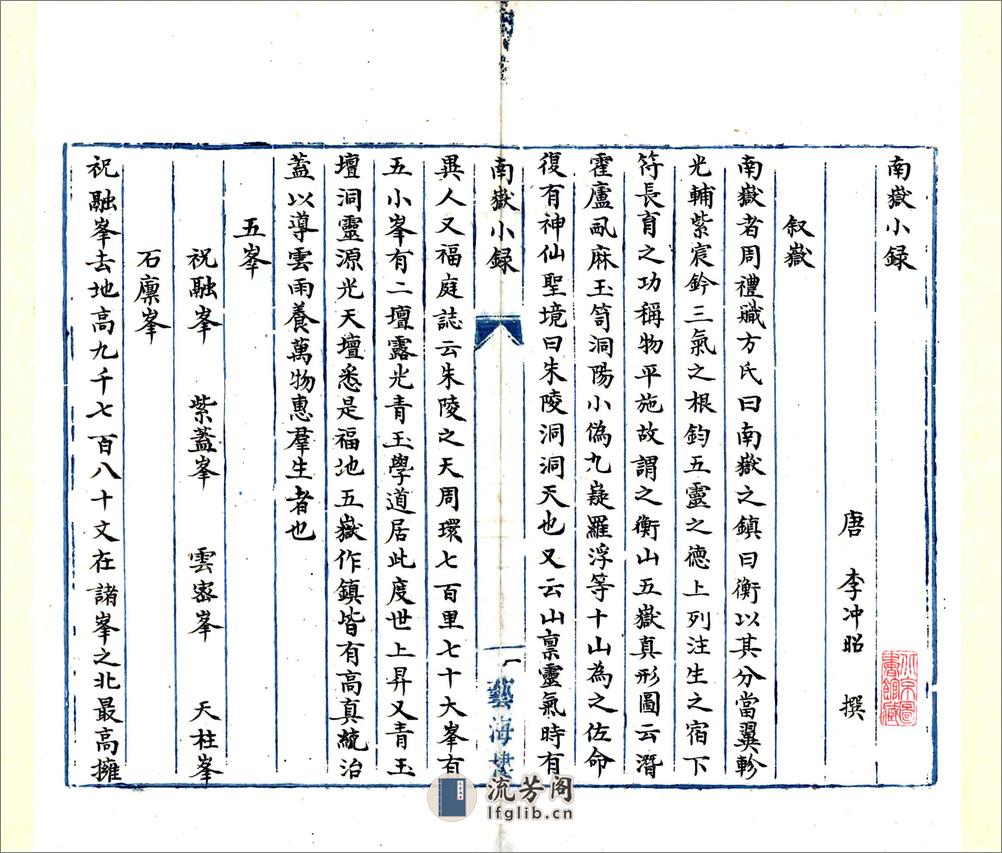 南嶽小録
唐 李冲昭 撰
叙嶽
南嶽者周禮職方氏曰南嶽之鎮曰衡以其分當翼軫
光輔紫宸鈐三氣之根鈞五靈之德上列注生之宿下
符長育之功稱物平施故謂之衡山五嶽真形圖云潛
霍廬颪麻玉笥洞陽小偽九嶷羅浮等十山為之佐命
復有神仙聖境曰朱陵洞洞天也又云山禀靈氣時有
南嶽小録
一
藝海樓
異人又福庭誌云朱陵之天周環七百里七十大峯有
五小峯有二壇露光青玉學道居此度世上昇又青玉
壇洞靈源光天壇悉是福地五嶽作鎮皆有高真統治
蓋以導雲雨養萬物惠羣生者也
五峯
祝融峯 紫蓋峯 雲密峯 天柱峯
石廪峯
祝融峯去地高九千七百八十文在諸峯之北最高擁
流芳阁
lfglib.cn